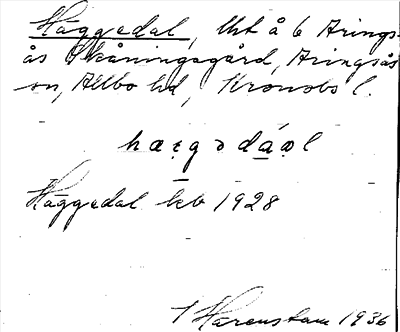 Häggedal, lht å 6 Arings-
ås Skåningagård, Aringsås
sn, Allbo hd, Kronobs l.
hæ̣gədáạl
Häggedal kb 1928
Harenstam 1936